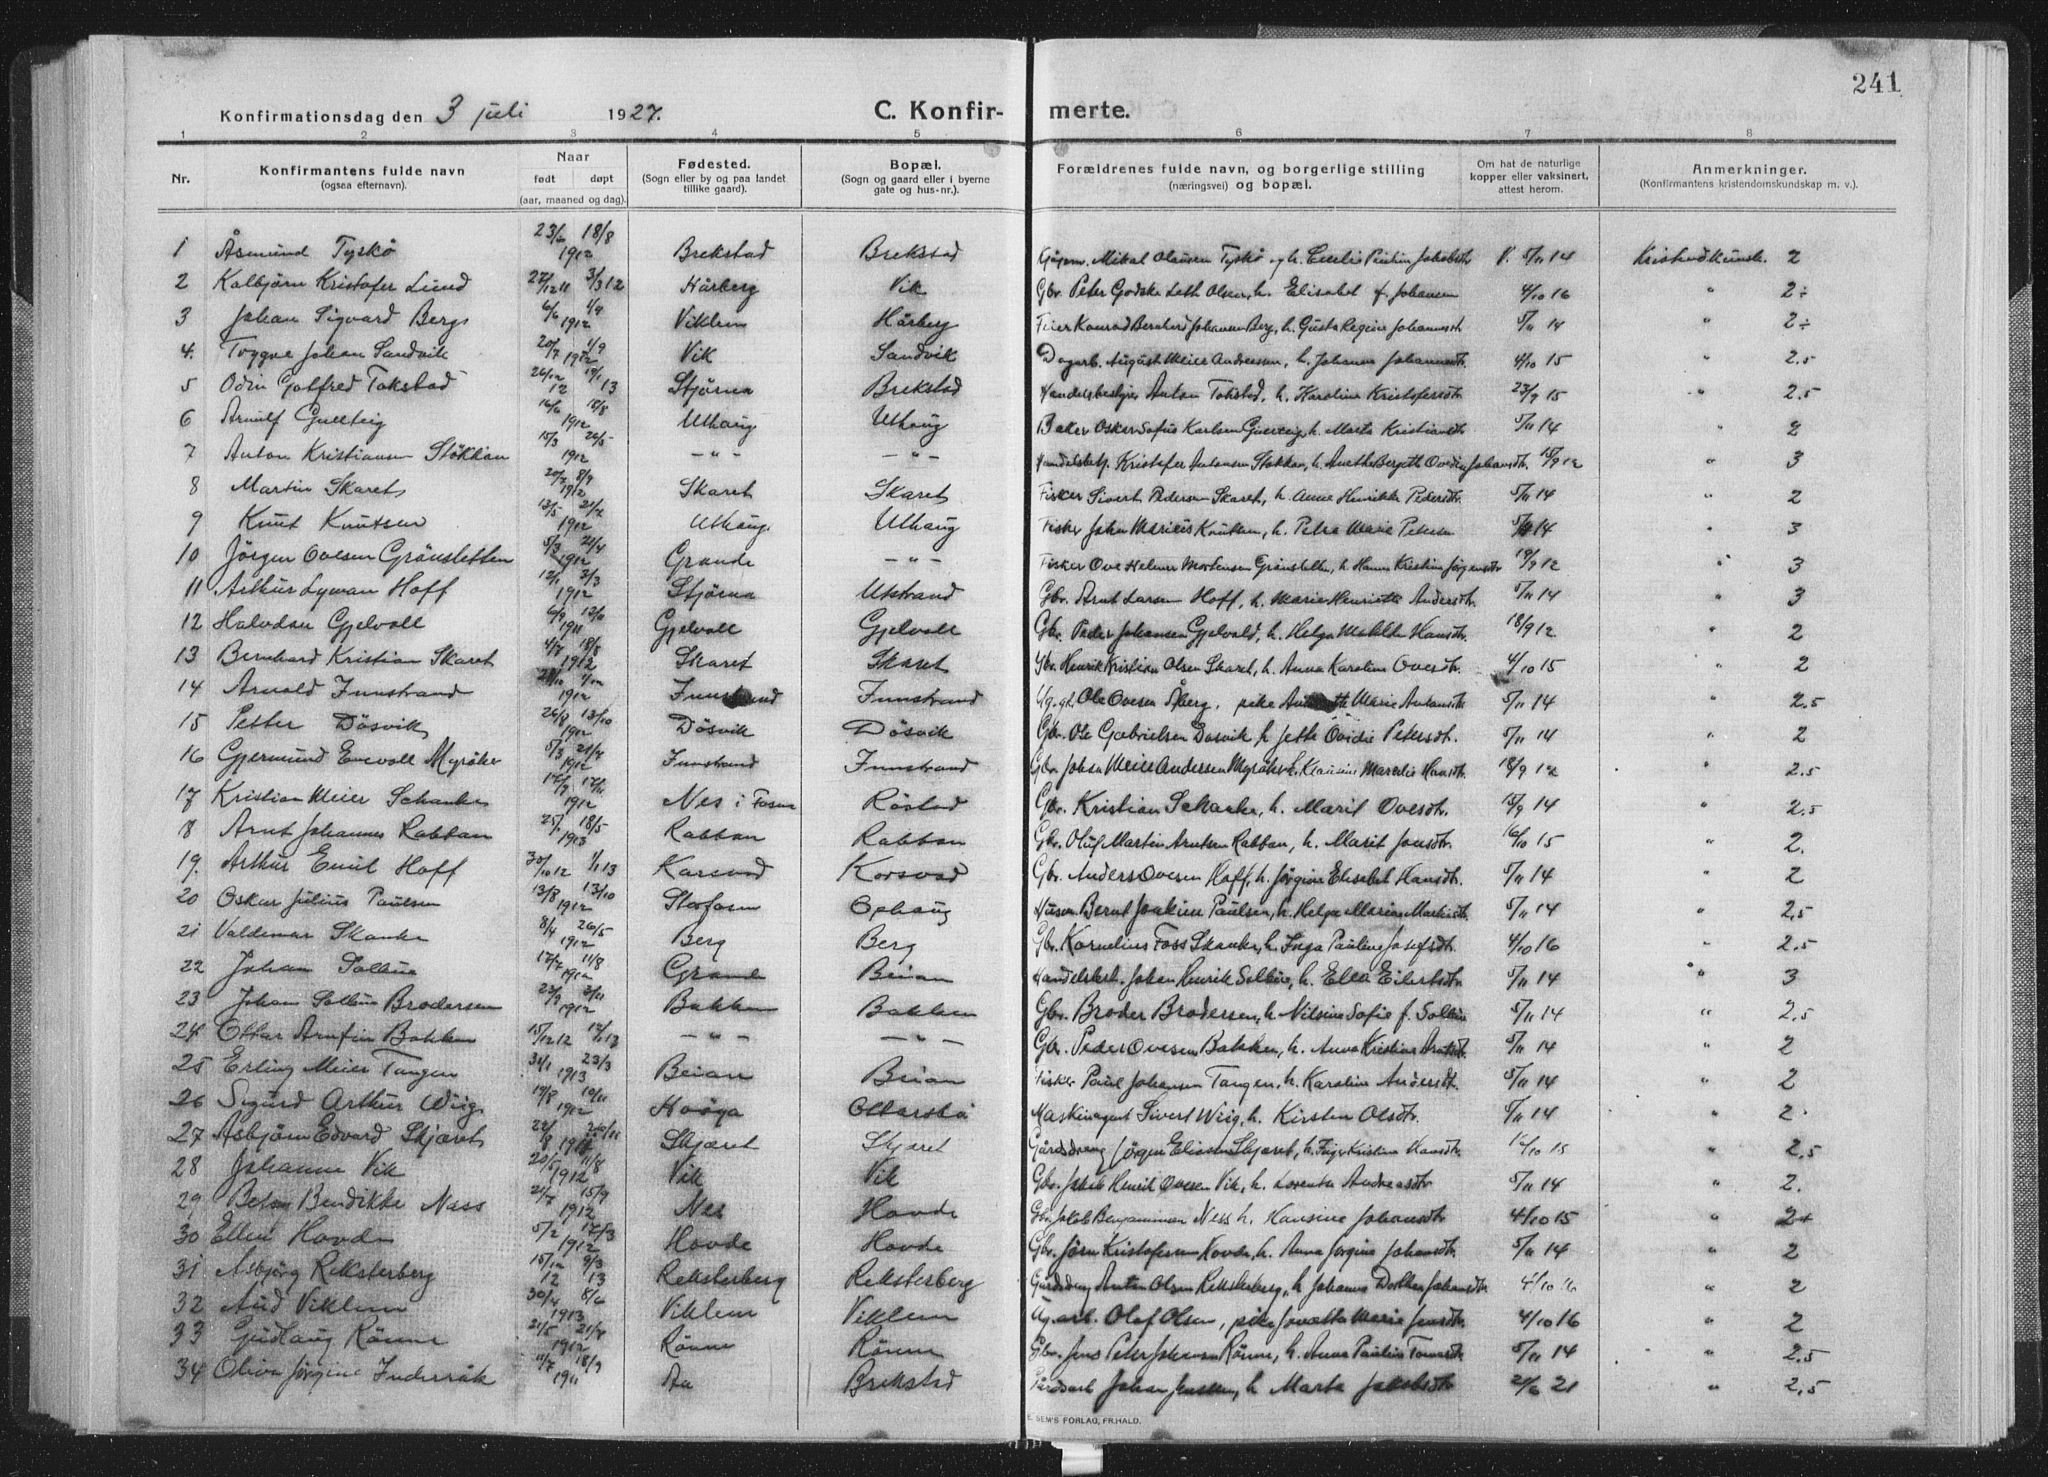 241
Konfirmationsdag den 3 juli 1927. C. Konfir- merte.
1 2 3 4 5 6 7 8
Nr. Konfirmantens fulde navn (ogsaa efternavn). Naar født døpt (aar, maaned og dag). Fødested. (Sogn eller by og paa landet tillike gaard). Bopæl. (Sogn og gaard eller i byerne gate og hus-nr.). Forældrenes fulde navn, og borgerlige stilling (næringsvei) og bopæl. Om hat de naturlige kopper eller vaksinert, attest herom. Anmerkninger. (Konfirmantens kristendomskundskap m. v.).
1 Åsmund Tyskø 18/8 1912 Brekstad Brekstad Mikal Olausen Tyskø og h. Jakobsdtr V. 5/11 14 Kristendkunsk. 2
2 Kolbjørn Kristofer Lund 27/12 11 3/3 12 Hårberg Vik Gbr. Peter Godske Leth Olsen, h. Elisabet f. Johansen 4/10 16 " 2÷
3 Johan Sigvard Berg 6/6 1/9 1912 Viklem Hårberg Feier Konrad Bernhard Johansen Berg, h. Gusta Regine Johannsdtr 5/11 14 " 2÷
4. Trygve Johan Sandvik 20/7 1/9 1912 Vik Sandvik Dagarb. August Meier Andreasen, h. Johanna Johannesdtr 4/10 15 " 2.5
5 Odin Gotfred Tokstad 26/10 12 13 Stjørna Brekstad Handelsbestyrer Anton Tokstad, h. Karoline Kristofersdtr 23/9 15 " 2.5
6 Arnulf Gullteig 16/6 18/8 1912 Uthaug Uthaug Baker Oskar Sofus Karlsen Gullteig, h. Marta Kristiansdtr 5/11 14 " 2
7 Anton Kristiansen Stökkan 15/3 26/5 1912 — " — — " — Kristofer Antonsen Stokkan, h. Anette Bergitte Ovedia Johansdtr. 18/9 12 " 3
8 Martin Skaret 20/7 8/9 1912 Skaret Skaret Fisker Sivert Pedersen Skaret, h. Anne Henrikke Pedersdtr 5/11 14 " 2
9 Knut Knutsen 13/5 21/7 1912 Uthaug Uthaug Fisker John Marius Knutsen, h. Petra Marie Petersen 5/11 14 " 3
10 Jörgen Ovesen Grönsletten 5/3 21/4 1912 Grande — " — Fisker Ove Helmer Mortensen Grönsletten, h. Hanna Kristine Jörgensdtr 18/9 12 " 3
11 Arthur Lyman Hoff 12/1 3/3 1912 Stjørna Utstrand Gbr. Arnt Larsen Hoff, h. Marie Henriette Andersdtr. 5/11 14 " 3
12 Halvdan Gjelvoll 6/9 12/11 1911 Gjelvoll Gjelvoll Gbr. Peder Johansen Gjelvold, h. Helga Matilde Hansdtr. 18/9 12 " 2
13 Bernhard Kristian Skaret 4/7 18/8 1912 Skaret Skaret Gbr. Henrik Kristian Olsen Skaret, h. Anna Karoline Ovesdtr. 4/10 15 " 2
14 Arnold Innstrand 1912 Innstrand Innstrand Ole Ovesen Åberg, pike Marie Antonsdtr 5/11 14 " 2.5
15 Petter Dösvik 26/8 13/10 1912 Dösvik Dösvik Gbr. Ole Gabrielsen Dösvik, h. Jette Ovidie Petersdtr. 5/11 14 " 2
16 Gjermund Enevoll Myråker 5/3 21/4 1912 Innstrand Innstrand Gbr. Johan Meier Andersen Myråker, h. Klausine Marselie Hansdtr 18/9 12 " 2.5
17 Kristian Meier Schanke 1912 Nes i Fosen Röstad Gbr. Kristian Schanke, h. Marit Ovesdtr. 18/9 14 " 2.5
18 Arnt Johannes Rabban 18/5 1913 Rabban Rabban Gbr. Oluf Martin Arntsen Rabban, h. Marit Jonsdtr. 16/10 15 " 2.
19. Arthur Emil Hoff 30/10 12 1/1 13 Karsvod Korsvod Gbr. Anders Ovesen Hoff, h. Jörgine Elisabet Hansdtr. 5/11 14 " 2
20 Oskar Julius Paulsen 13/8 13/10 1912 Storfosen Ophaug Husm. Bernt Joakim Paulsen, h. Helga Marie Martinsdtr 5/11 14 " 2,5
21 Valdemar Skanke 8/4 26/5 1912 Berg Berg Gbr. Kornelius Foss Skanke, h. Inga Pauline Josefsdtr. 4/10 16 " 2.5
22 Johan Solbue 17/7 11/8 1912 Grande Beian Johan Henrik Solbue, h. Ella Eilertsdtr 5/11 14 " 3
23 Johan Solbue Brodersen 23/9 3/11 1912 Bakken Bakken Gbr. Broder Brodersen, h. Nilsine Sofie f. Solbue 5/11 14 " 2.5
24 Ottar Arnfin Bakken 15/12 12 1/13 — " — — " — Gbr. Peder Ovesen Bakken, h. Anna Kristine Arntsdtr 5/11 14 " 2
25 Erling Meier Tangen 31/1 23/3 1913 Beian Beian Fisker Paul Johansen Tangen, h. Karoline Andersdtr. 5/11 14 " 2
26 Sigurd Arthur Wiig 19/8 10/11 1912 Ottersbo Maskinagent Sivert Wiig, h. Kirsten Olsdtr. 5/11 14 " 2
27 Asbjörn Edvard Skjæret Skjæret Skjæret Gårdsdreng Jörgen Eliasen Skjæret, h. Inger Kristine Hansdtr. 10 15 " 2,5
28 Johanne Vik 20/5 11/8 1912 Vik Vik Gbr. Jakob Henrik Ovesen Vik, h. Lorentse Andreasdtr 5/11 14 " 2.
29 Bendikke Næss 21/7 15/9 1912 Nes Hovde Gbr. Jakob Benjaminsen Ness, h. Hansine Johansdtr 4/10 15 " 2+
30 Ellen Hovde 5/2 17/3 1912 Hovde Hovde Gbr. Jörn Kristofersen Hovde, h. Anna Jörgine Johansdtr. 5/11 14 " 2
31 Asbjörg Reksterberg 15/12 12 9/3 13 Reksterberg Reksterberg Gårdsdreng Anton Olsen Reksterberg, h. Johanna Dorthea Johansdtr 4/10 16 " 2
32 Aud Viklem 30/4 8/6 1913 Viklem Viklem Olaf Olsen, pike Marie Jensdtr. 4/10 16 " 2
33 Gudlaug Rönne 21/5 21/8 1912 Rönne Rönne Gbr. Jens Peter Johansen Rönne, h. Anna Pauline 5/11 14 " 2.5
34 Oliva Jörgine Inderråk 11/7 18/9 1911 Aa Brekstad Johan Jensen, h. Marta Jakobsdtr 21/6 21 " 2,5
E. SEM'S FORLAG, FR.HALD.